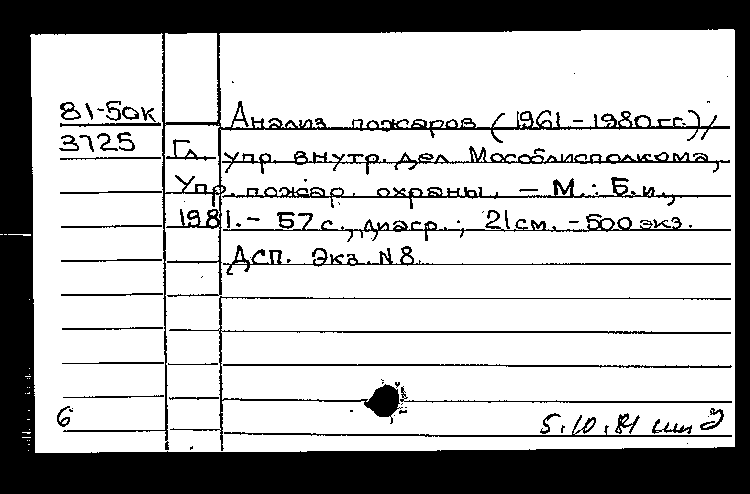 81-50к
3725
Анализ пожаров (1961-1980гг.)/
Гл. упр. внутр. дел Мособлисполкома,
Упр. пожар. охраны. - М.: Б.и.,
1981. - 57 с., диагр.; 21 см. - 500 экз.
Дсп. Экз. N 8
6
5.10.81